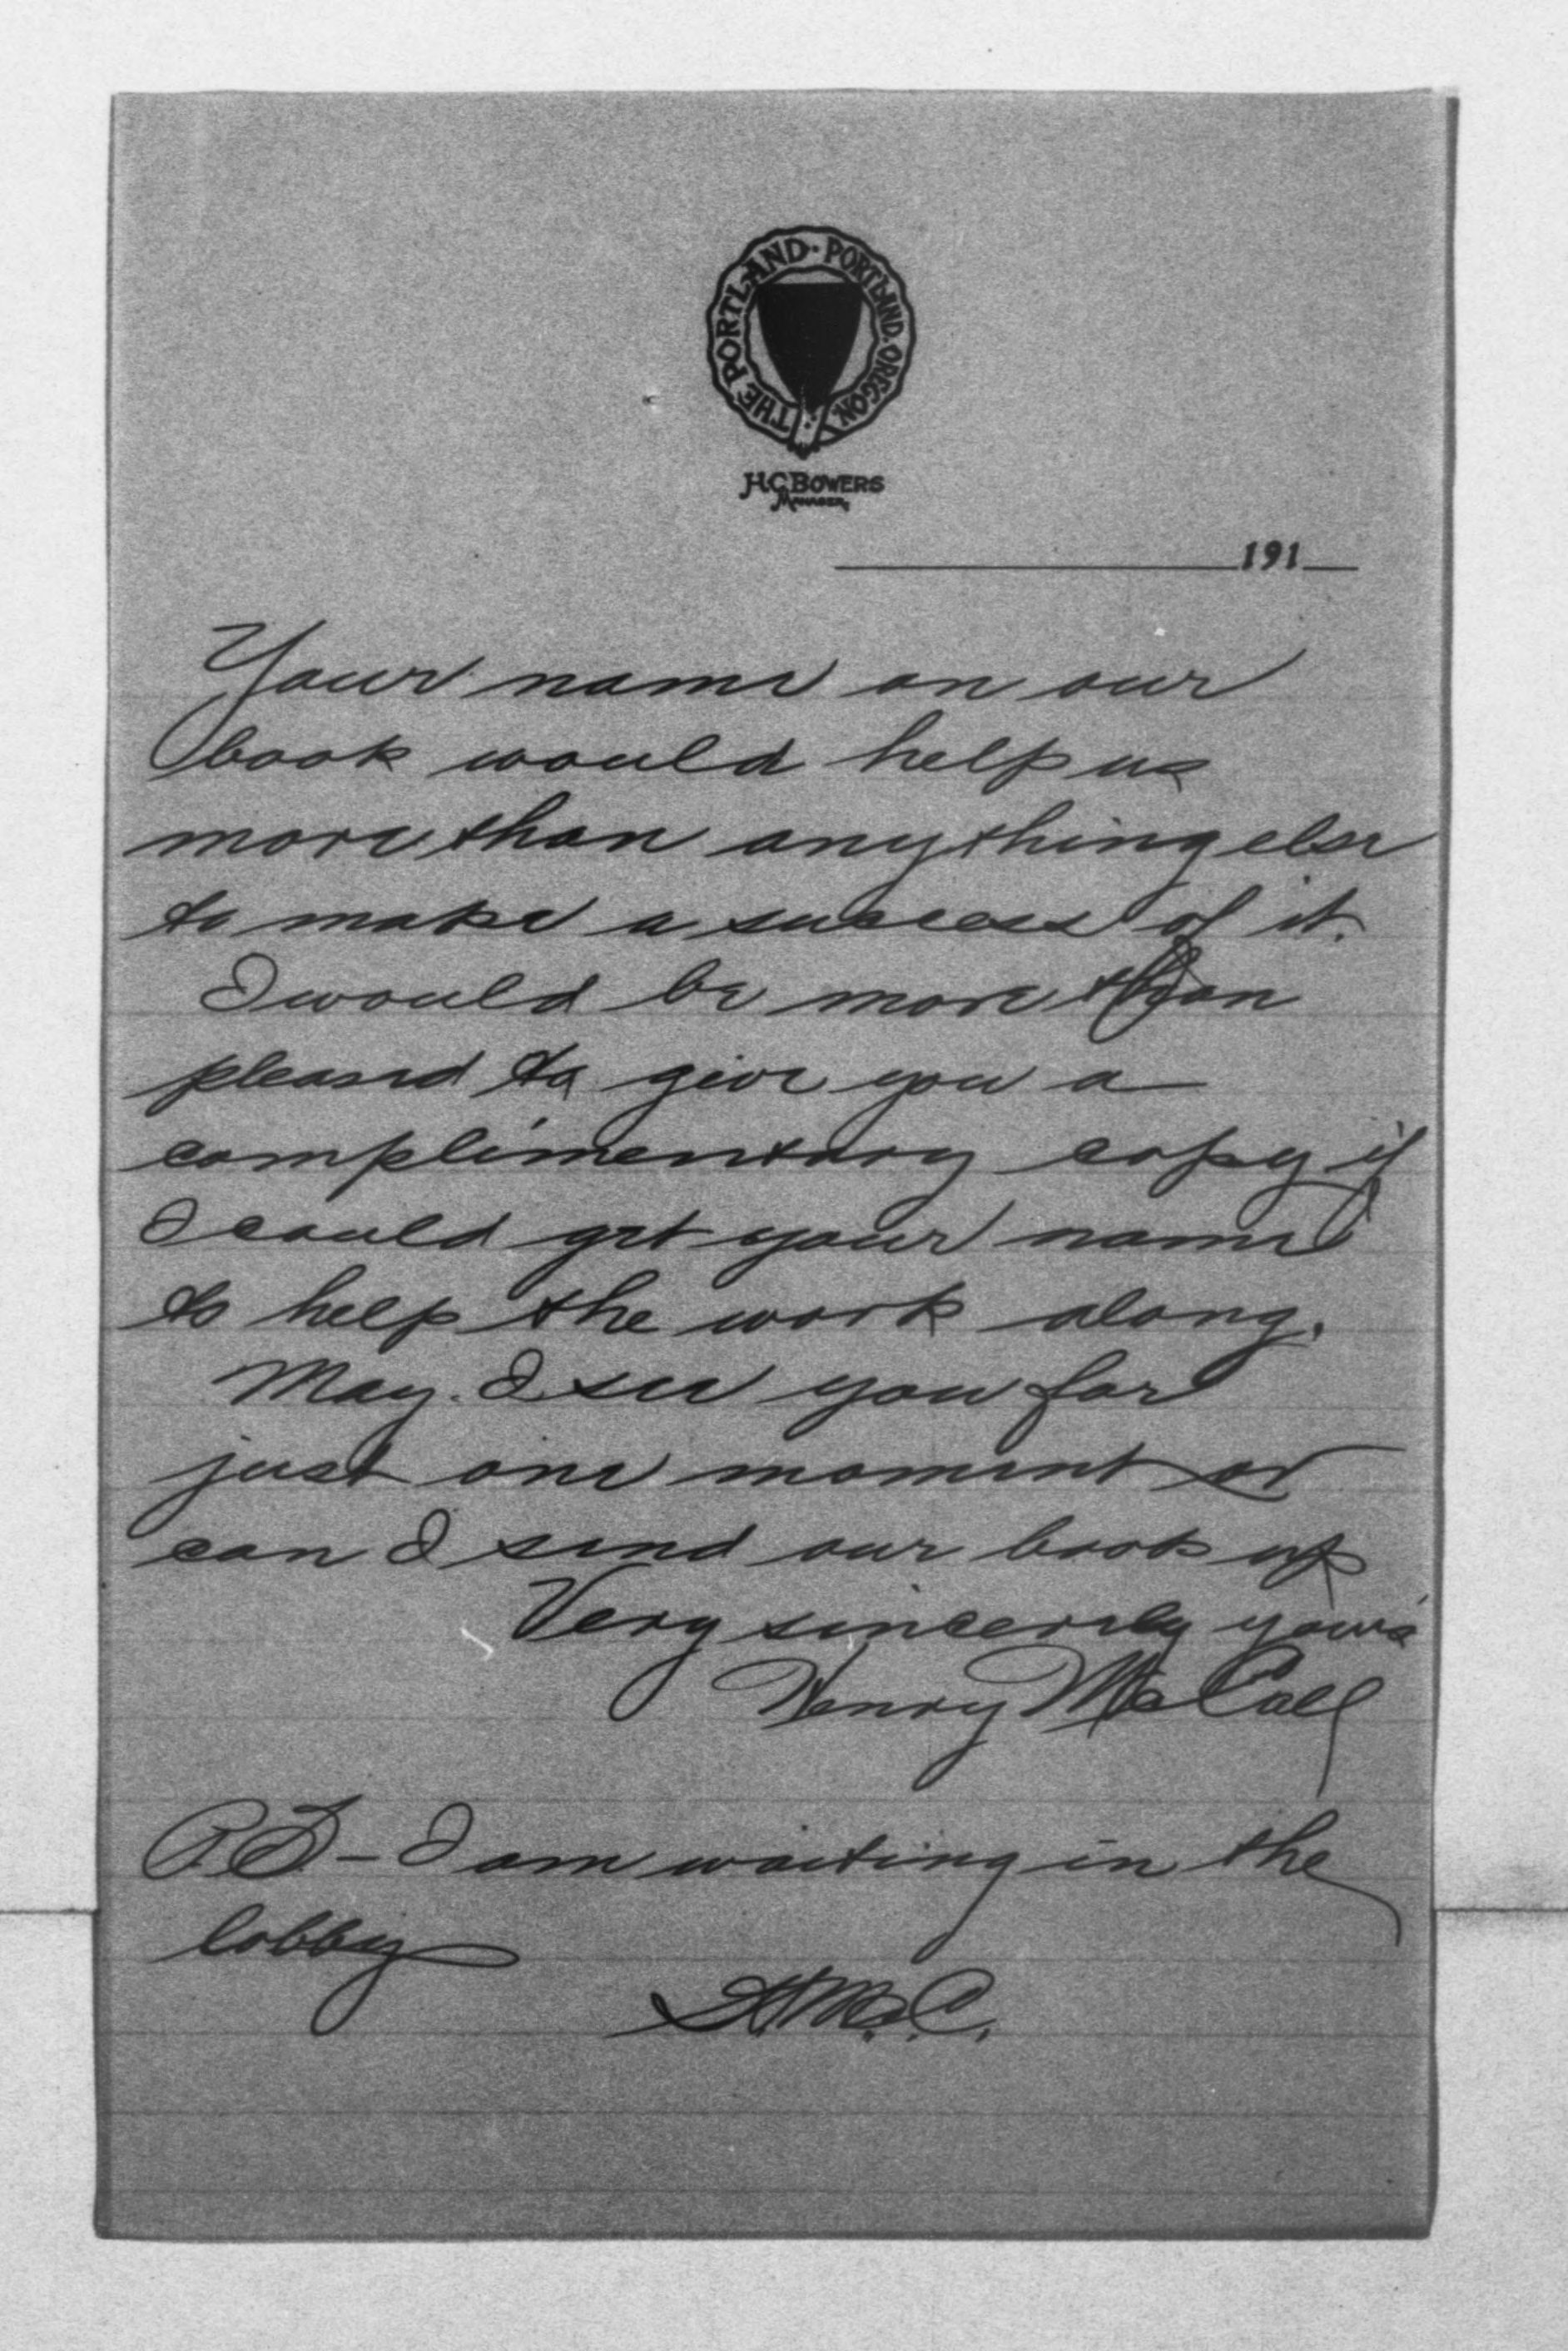 THE PORTLAND · PORTLAND. OREGON
H.C. BOWERS
MANAGER
191
Your name on our
book would help us
more than anything else
to make a success of it.
I would be more than
pleased to give you a
complimentary copy if
I could get your name
to help the work along.
May I see you for
just one moment or
can I send our book up
Very sincerely yours
Henry McCall
P.S. – I am waiting in the
lobby
H.Mc.C.